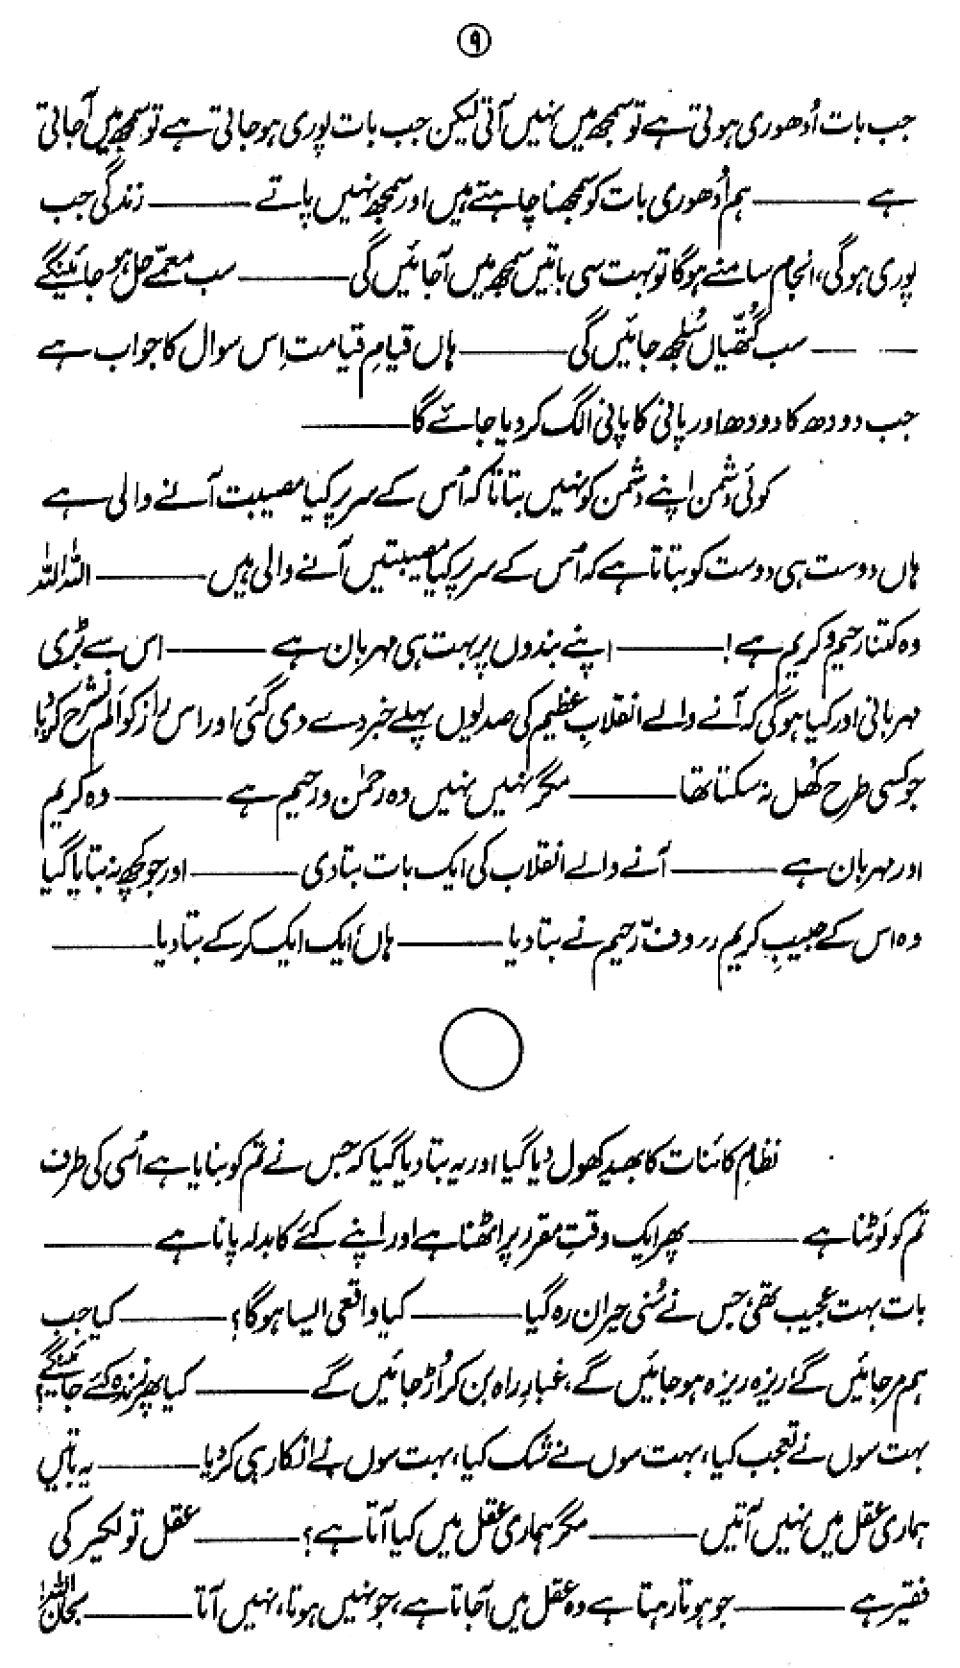 ۹
جب بات اُدھوری ہوتی ہے تو سمجھ میں نہیں آتی لیکن جب بات پوری ہو جاتی ہے تو سمجھ میں آجاتی
ہے ——— ہم اُدھوری بات کو سمجھنا چاہتے ہیں اور سمجھ نہیں پاتے ——— زندگی جب
پوری ہوگی، انجام سامنے ہوگا تو بہت سی باتیں سمجھ میں آجائیں گی ——— سب معمّے حل ہو جائینگے
——— سب گتھّیاں سُلجھ جائیں گی ——— ہاں قیامِ قیامت اِس سوال کا جواب ہے
جب دودھ کا دودھ اور پانی کا پانی الگ کر دیا جائے گا ———
کوئی دشمن اپنے دشمن کو نہیں بتاتا کہ اُس کے سر پر کیا مصیبت آنے والی ہے
ہاں دوست ہی دوست کو بتاتا ہے کہ اُس کے سر پر کیا مصیبتیں آنے والی ہیں ——— اللہ اللہ
وہ کتنا رحیم و کریم ہے! ——— اپنے بندوں پر بہت ہی مہربان ہے ——— اس سے بڑی
مہربانی اور کیا ہوگی کہ آنے والے انقلابِ عظیم کی صدیوں پہلے خبر دے دی گئی اور اس راز کو اَلم نشرح کر دیا
جو کسی طرح کھُل نہ سکتا تھا ——— مگر نہیں نہیں وہ رحمٰن و رحیم ہے ——— وہ کریم
اور مہربان ہے ——— آنے والے انقلاب کی ایک بات بتادی ——— اور جو کچھ نہ بتایا گیا
وہ اس کے حبیبِ کریم رروفّ رّحیم نے بتا دیا ——— ہاں ایک ایک کر کے بتا دیا ———
نظامِ کائنات کا بھید کھول دیا گیا اور یہ بتا دیا گیا کہ جس نے تم کو بنایا ہے اُسی کی طرف
تم کو لَوٹنا ہے ——— پھر ایک وقتِ مقرر پر اٹھنا ہے اور اپنے کئے کا بدلہ پانا ہے ———
بات بہت عجیب تھی، جس نے سُنی حیران رہ گیا ——— کیا واقعی ایسا ہوگا؟ ——— کیا جب
ہم مر جائیں گے، ریزہ ریزہ ہو جائیں گے، غبارِ راہ بن کر اُڑ جائیں گے ——— کیا پھر زندہ کئے جائینگے؟
بہت سوں نے تعجب کیا، بہت سوں نے شک کیا، بہت سوں نے انکار ہی کر دیا ——— یہ باتیں
ہماری عقل میں نہیں آتیں ——— مگر ہماری عقل میں کیا آتا ہے؟ ——— عقل تو لکیر کی
فقیر ہے ——— جو ہوتا رہتا ہے وہ عقل میں آجاتا ہے، جو نہیں ہوتا، نہیں آتا ——— سبحان اللہ!